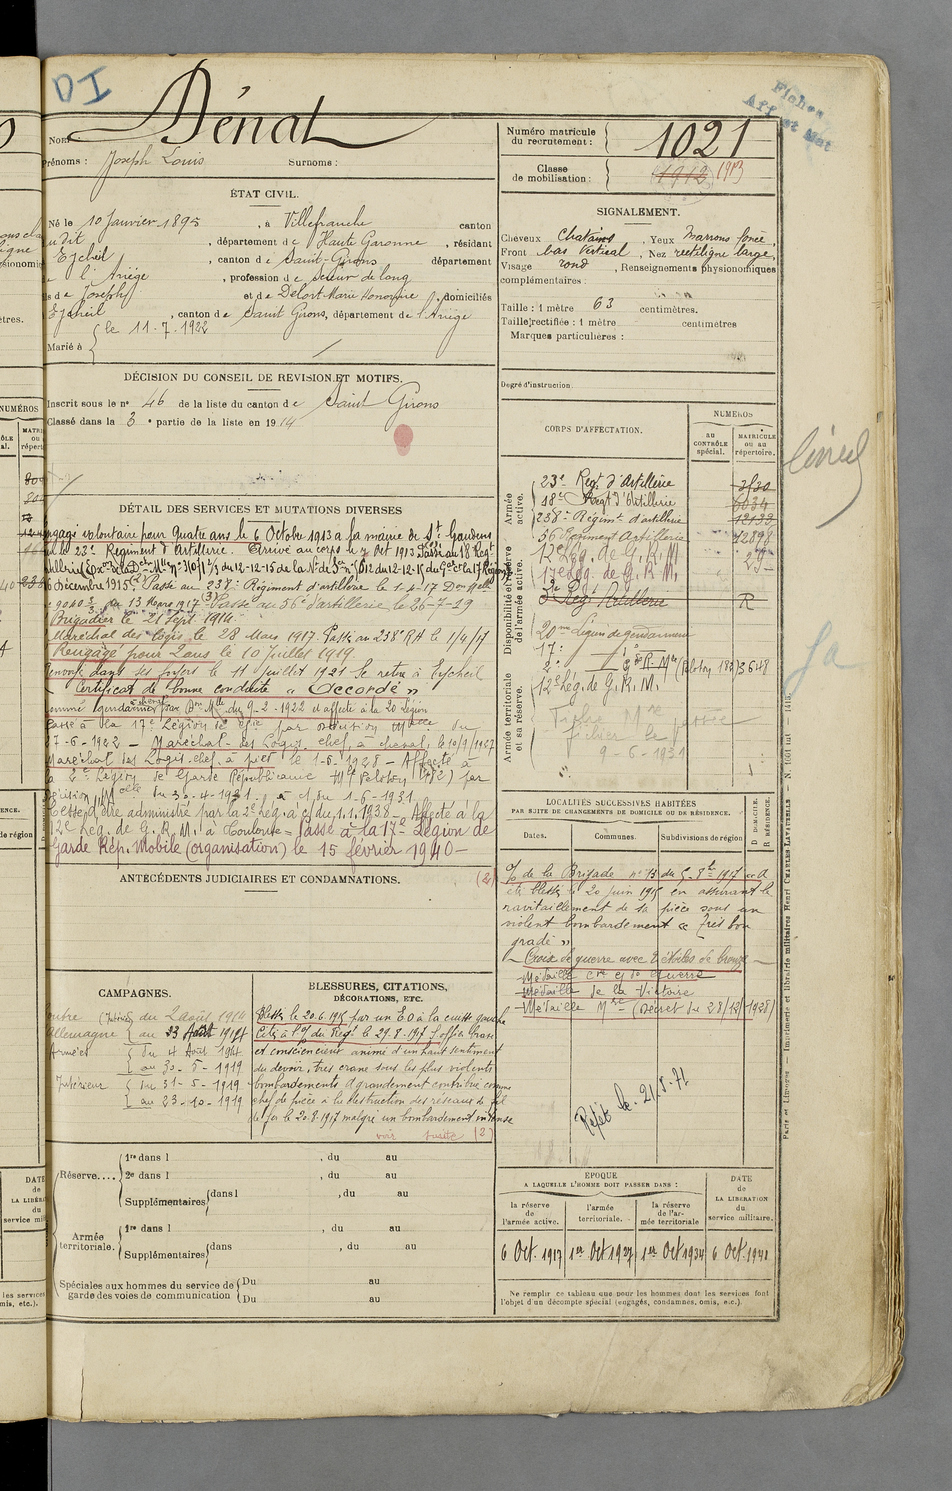 DI
Dénat
Nom
Prénoms : Joseph Louis Surnoms :
Numéro matricule du recrutement : 1021
Classe de mobilisation : 1912 1913
Fiches
Aff et Mat
ÉTAT CIVIL.
Né le 10 Janvier 1895, à Villefranche canton
du dit, département de Haute Garonne, résidant
Eycheil, canton de Saint-Girons département
de l'Ariège, profession de Scieur de long
fils de Joseph et de Delort Marie Honorine, domiciliés
Eycheil, canton de Saint Girons, département de l'Ariège
Marié à { le 11.7.1922
SIGNALEMENT.
Cheveux Chatains, Yeux Marrons foncé,
Front bas Vertical, Nez rectiligne large,
Visage rond, Renseignements physionomiques
complémentaires :
Taille : 1 mètre 63 centimètres.
Taille rectifiée : 1 mètre centimètres
Marques particulières :
Degré d'instruction.
DÉCISION DU CONSEIL DE REVISION ET MOTIFS.
Inscrit sous le n° 46 de la liste du canton de Saint Girons
Classé dans la 3e partie de la liste en 1914
DÉTAIL DES SERVICES ET MUTATIONS DIVERSES
Engagé volontaire pour quatre ans le 6 Octobre 1913 a la mairie de St. Gaudens
au 23e Regiment d'Artillerie. Arrivé au corps le 7 Oct 1913 Passé au 18e Regt
16 Décembre 1915. Passé au 238e Régiment d'artillerie le 1-4-17 Don Mlle
n° 9040 3/3 du 13 Mars 1917 (3) Passé au 56e d'artillerie le 26-7-19
Brigadier le 21 Sept 1914
Maréchal des Logis le 28 Mars 1917. Passé au 238e RA le 1/4/17
Rengagé pour 2 ans le 10 Juillet 1919.
Renvoyé dans ses foyers le 11 Juillet 1921 Se retire à Eycheil
Certificat de bonne conduite « Accordé »
Nommé gendarme à cheval par Don Mlle du 9-2-1922 et affecté à la 20 Légion
Passé à la 17e Légion de Gie par décision Mlle du
27-6-1922 – Maréchal-des Logis chef, à cheval, le 10/9/1927
Maréchal des Logis chef à pied le 1-6-1928 – Affecté à
la 2e Légion de Garde Républicaine Mle Peloton (182) par
décision Mlle du 30-4-1931, à c/ du 1-6-1931
Cesse d'être administré par la 2e Lég. à c/ du 1.1.1938 – Affecté à la
12e Leg. de G.R.M. à Toulouse = Passé à la 17e Légion de
Garde Rép. Mobile (organisation) le 15 février 1940 –
CORPS D'AFFECTATION.
NUMÉROS
AU CONTRÔLE spécial.
MATRICULE ou au répertoire.
Armée active.
23e Regt d'Artillerie
18e Regt d'Artillerie 6034
238e Régimt d'artillerie 12133
56 Régiment Artillerie 12898
Disponibilité et réserve de l'armée active.
12e Lég. de G.R.M
17e Lég. de G.R.M.
3e Reg Artillerie R
20me Légion de gendarmerie
17e
2e G. R. Mle (Peloton 182) 3648
Armée territoriale et sa réserve.
12e Lég. de G.R.M.
9-6-1931
LOCALITÉS SUCCESSIVES HABITÉES
PAR SUITE DE CHANGEMENTS DE DOMICILE OU DE RÉSIDENCE.
D DOMICILE. R RÉSIDENCE.
Dates. Communes. Subdivisions de région
de la Brigade n° 13 du 5-8bre 1917 « A
été blessé le 20 juin 1915 en assurant le
ravitaillement de sa pièce sous un
violent bombardement « Très bon
gradé »
Croix de guerre avec 2 étoiles de bronze –
Médaille cve gde guerre
Médaille de la Victoire
Médaille Mre (Décret du 28/12/1928)
ANTÉCÉDENTS JUDICIAIRES ET CONDAMNATIONS. (2)
CAMPAGNES.
contre (Intérieur) du 2 août 1914
Allemagne au 23 Août 1914
Armées { du 4 Août 1914
au 30-5-1919
Intérieur { du 31-5-1919
au 23-10-1919
BLESSURES, CITATIONS,
DÉCORATIONS, ETC.
Blessé le 20.6.1915 par un E.O à la cuisse gauche
Cité à l'O/ du Regt. le 29.8.1917 S/offr brave
et consciencieux animé d'un haut sentiment
du devoir, très crane sous les plus violents
bombardements A grandement contribué comme
chef de pièce à la destruction des réseaux de fil
de fer le 20.8.1917 malgré un bombardement intense
voir suite (2)
Réserve.... 1re dans l , du au
2e dans l , du au
Supplémentaires dans l , du au
Armée territoriale. 1re dans l , du au
Supplémentaires dans , du au
Spéciales aux hommes du service de garde des voies de communication Du au
Du au
ÉPOQUE
A LAQUELLE L'HOMME DOIT PASSER DANS :
la réserve de l'armée active.
l'armée territoriale.
la réserve de l'armée territoriale
DATE de LA LIBÉRATION du service militaire.
6 Oct. 1917
1er Oct 1927
1er Oct 1934
6 Oct. 1941
Ne remplir ce tableau que pour les hommes dont les services font
l'objet d'un décompte spécial (engagés, condamnés, omis, etc.).
Paris et Limoges — Imprimerie et librairie militaires Henri CHARLES-LAVAUZELLE